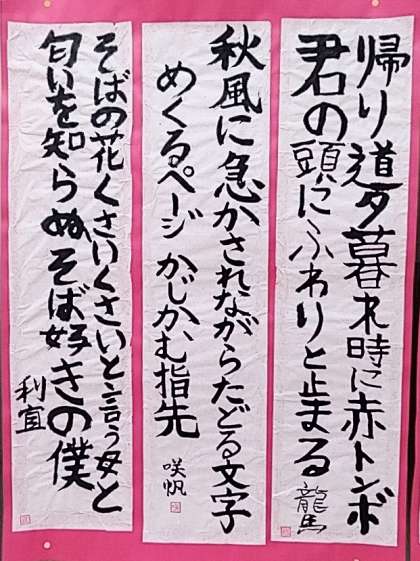 帰り道夕暮れ時に赤トンボ
君の頭にふわりと止まる
龍馬
秋風に急かされながらたどる文字
めくるページかじかむ指先
咲帆
そばの花くさいくさいと言う友と
匂いを知らぬそば好きの僕
利宣